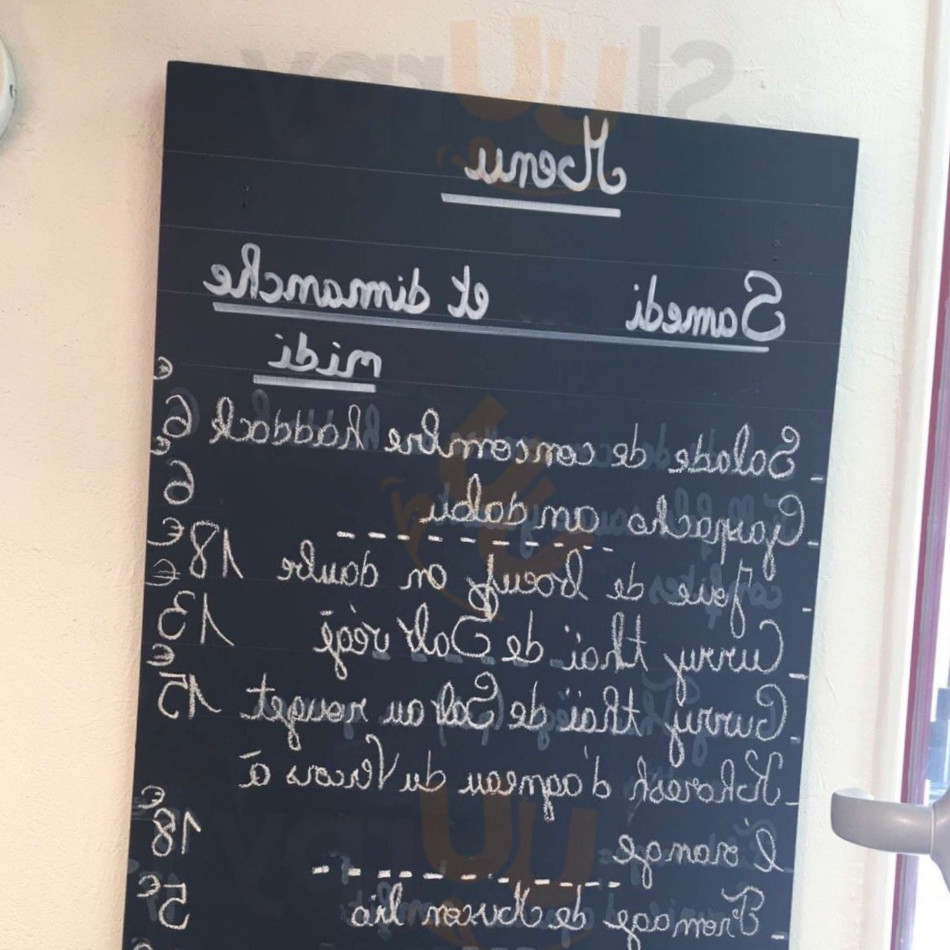 Menu
Samedi et dimanche
midi
- Salade de concombre haddock 6€
- Gaspacho andalou 6€
- Joue de boeuf en daube 18€
- Curry thaï de Sab végé 13€
- Curry thaï de Sab au rouget 15€
- Khoresh d'agneau du Vercors à
l'orange 18€
- Fromage de Vercors bio 5€